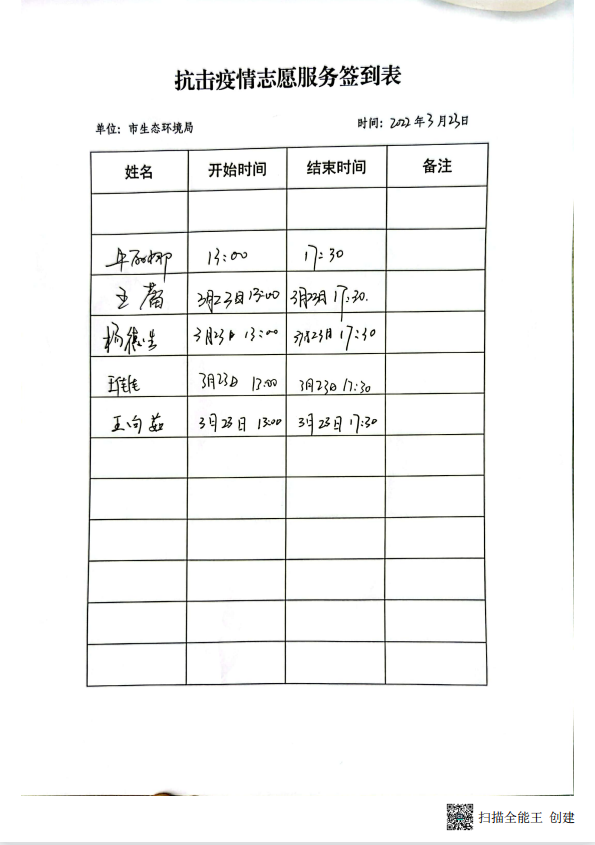 抗击疫情志愿服务签到表
单位：市生态环境局 时间：2022年3月23日
姓名 开始时间 结束时间 备注
13:00 17:30
王蕾 3月23日13:00 3月23日 17:30.
杨德生 3月23日 13:00 3月23日 17:30
王佳佳 3月23日 13:00 3月23日 17:30
王向茹 3月23日 13:00 3月23日 17:30
扫描全能王 创建